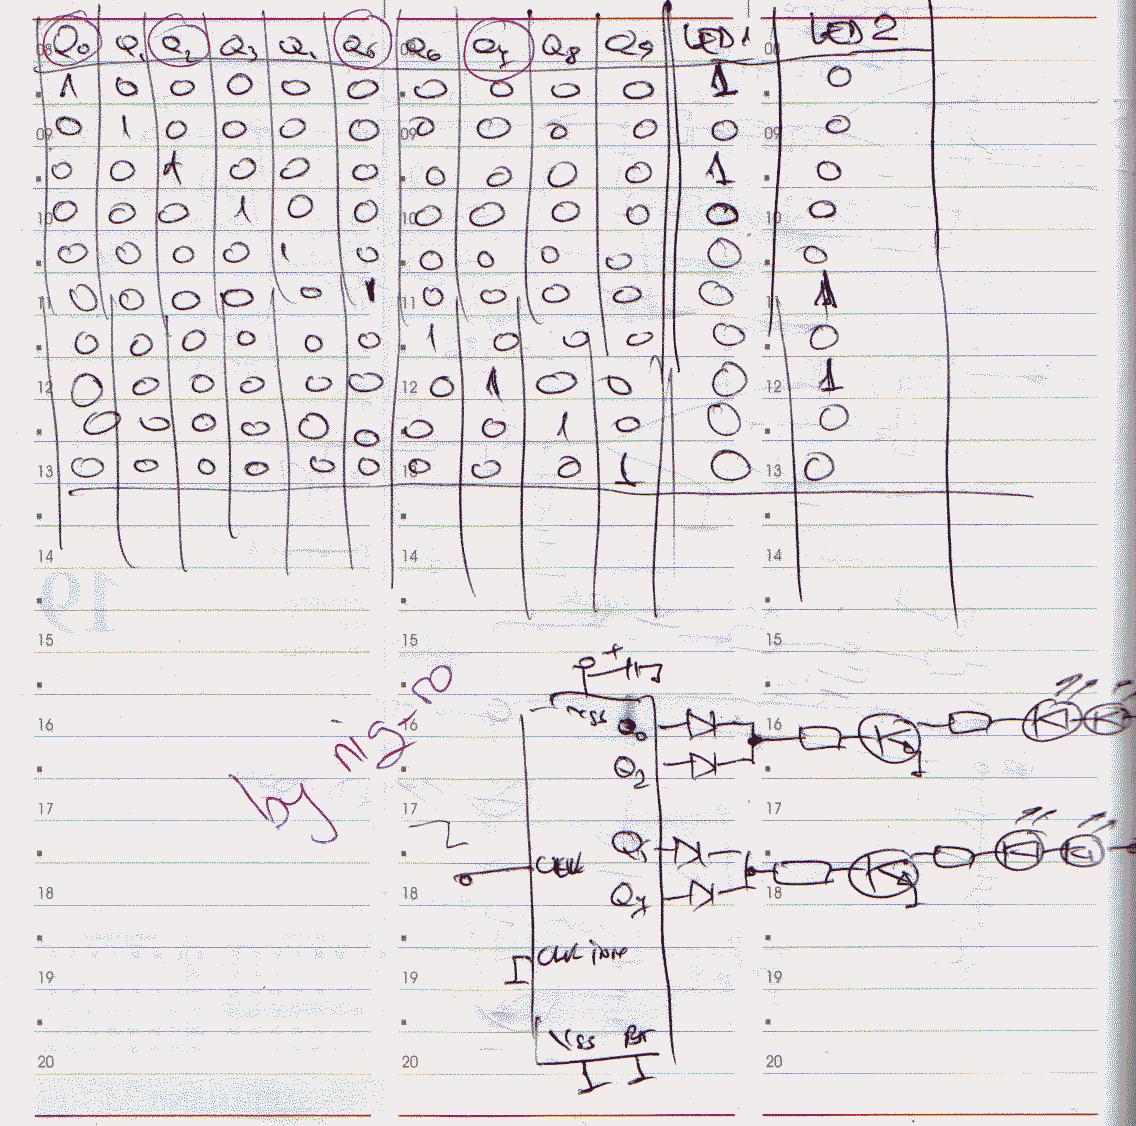 Q0 Q1 Q2 Q3 Q4 Q5 Q6 Q7 Q8 Q9 LED1 LED2
08 08 08
1 0 0 0 0 0 0 0 0 0 1 0
09 0 1 0 0 0 0 09 0 0 0 0 0 09 0
0 0 1 0 0 0 0 0 0 0 1 0
10 0 0 0 1 0 0 10 0 0 0 0 0 10 0
0 0 0 0 1 0 0 0 0 0 0 0
11 0 0 0 0 0 1 11 0 0 0 0 0 11 1
0 0 0 0 0 0 1 0 0 0 0 0
12 0 0 0 0 0 0 12 0 1 0 0 0 12 1
0 0 0 0 0 0 0 0 1 0 0 0
13 0 0 0 0 0 0 13 0 0 0 1 0 13 0
14 14 14
19
15 15 15
+
16 16 16
Q0
Q2
by nig-ro
17 17 17
Q5
CLK
18 18 18
Q7
19 19 19
VSS
20 20 20